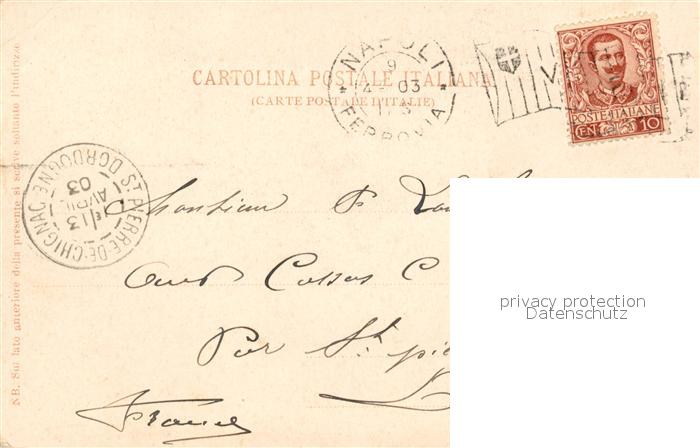 CARTOLINA POSTALE ITALIANA
(CARTE POSTALE D'ITALIE)
NAPOLI
9
4-03
FERROVIA
POSTE ITALIANE
CENT 10
ST PIERRE-DE-CHIGNAC DORDOGNE
13
AVRIL
03
N.B. Sul lato anteriore della presente si scrive soltanto l'indirizzo
Monsieur P
aux C
Par St. pie
France
privacy protection
Datenschutz